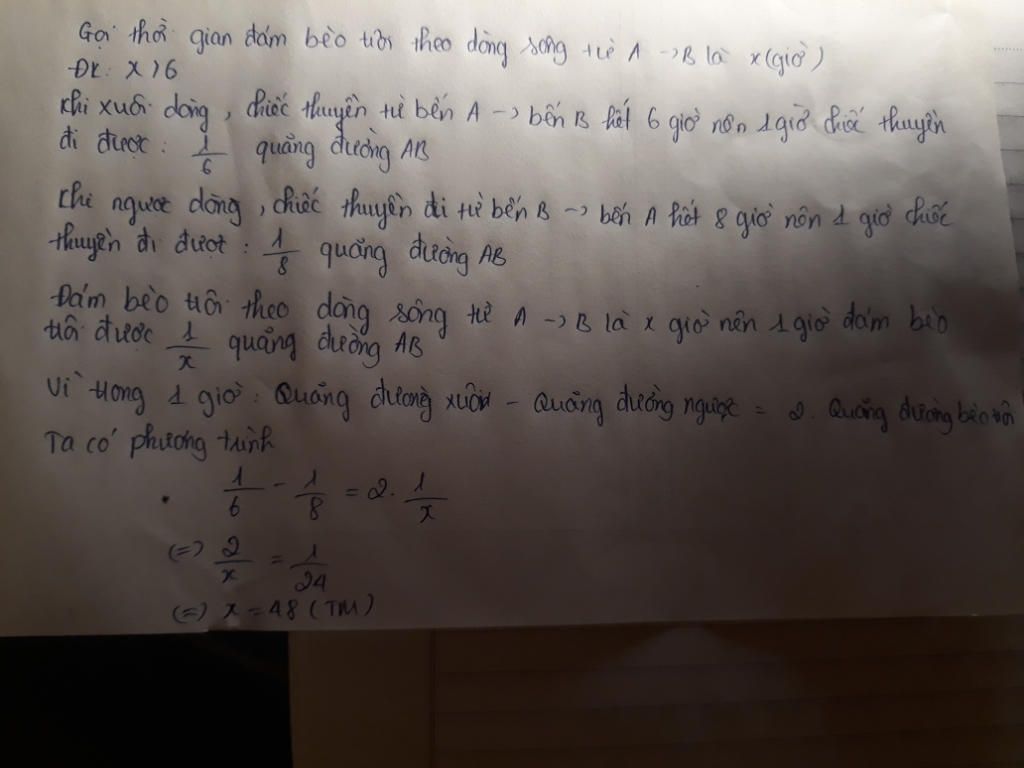 Gọi thời gian đám bèo trôi theo dòng sông từ A → B là x (giờ)
ĐK: x > 6
Khi xuôi dòng, chiếc thuyền từ bến A → bến B hết 6 giờ nên 1 giờ chiếc thuyền
đi được: 1/6 quãng đường AB
Khi ngược dòng, chiếc thuyền đi từ bến B → bến A hết 8 giờ nên 1 giờ chiếc
thuyền đi được: 1/8 quãng đường AB
Đám bèo trôi theo dòng sông từ A → B là x giờ nên 1 giờ đám bèo
trôi được 1/x quãng đường AB
Vì trong 1 giờ: Quãng đường xuôi - Quãng đường ngược = 2. Quãng đường bèo trôi
Ta có phương trình
1/6 - 1/8 = 2. 1/x
(=) 2/x = 1/24
(=) x = 48 (TM)